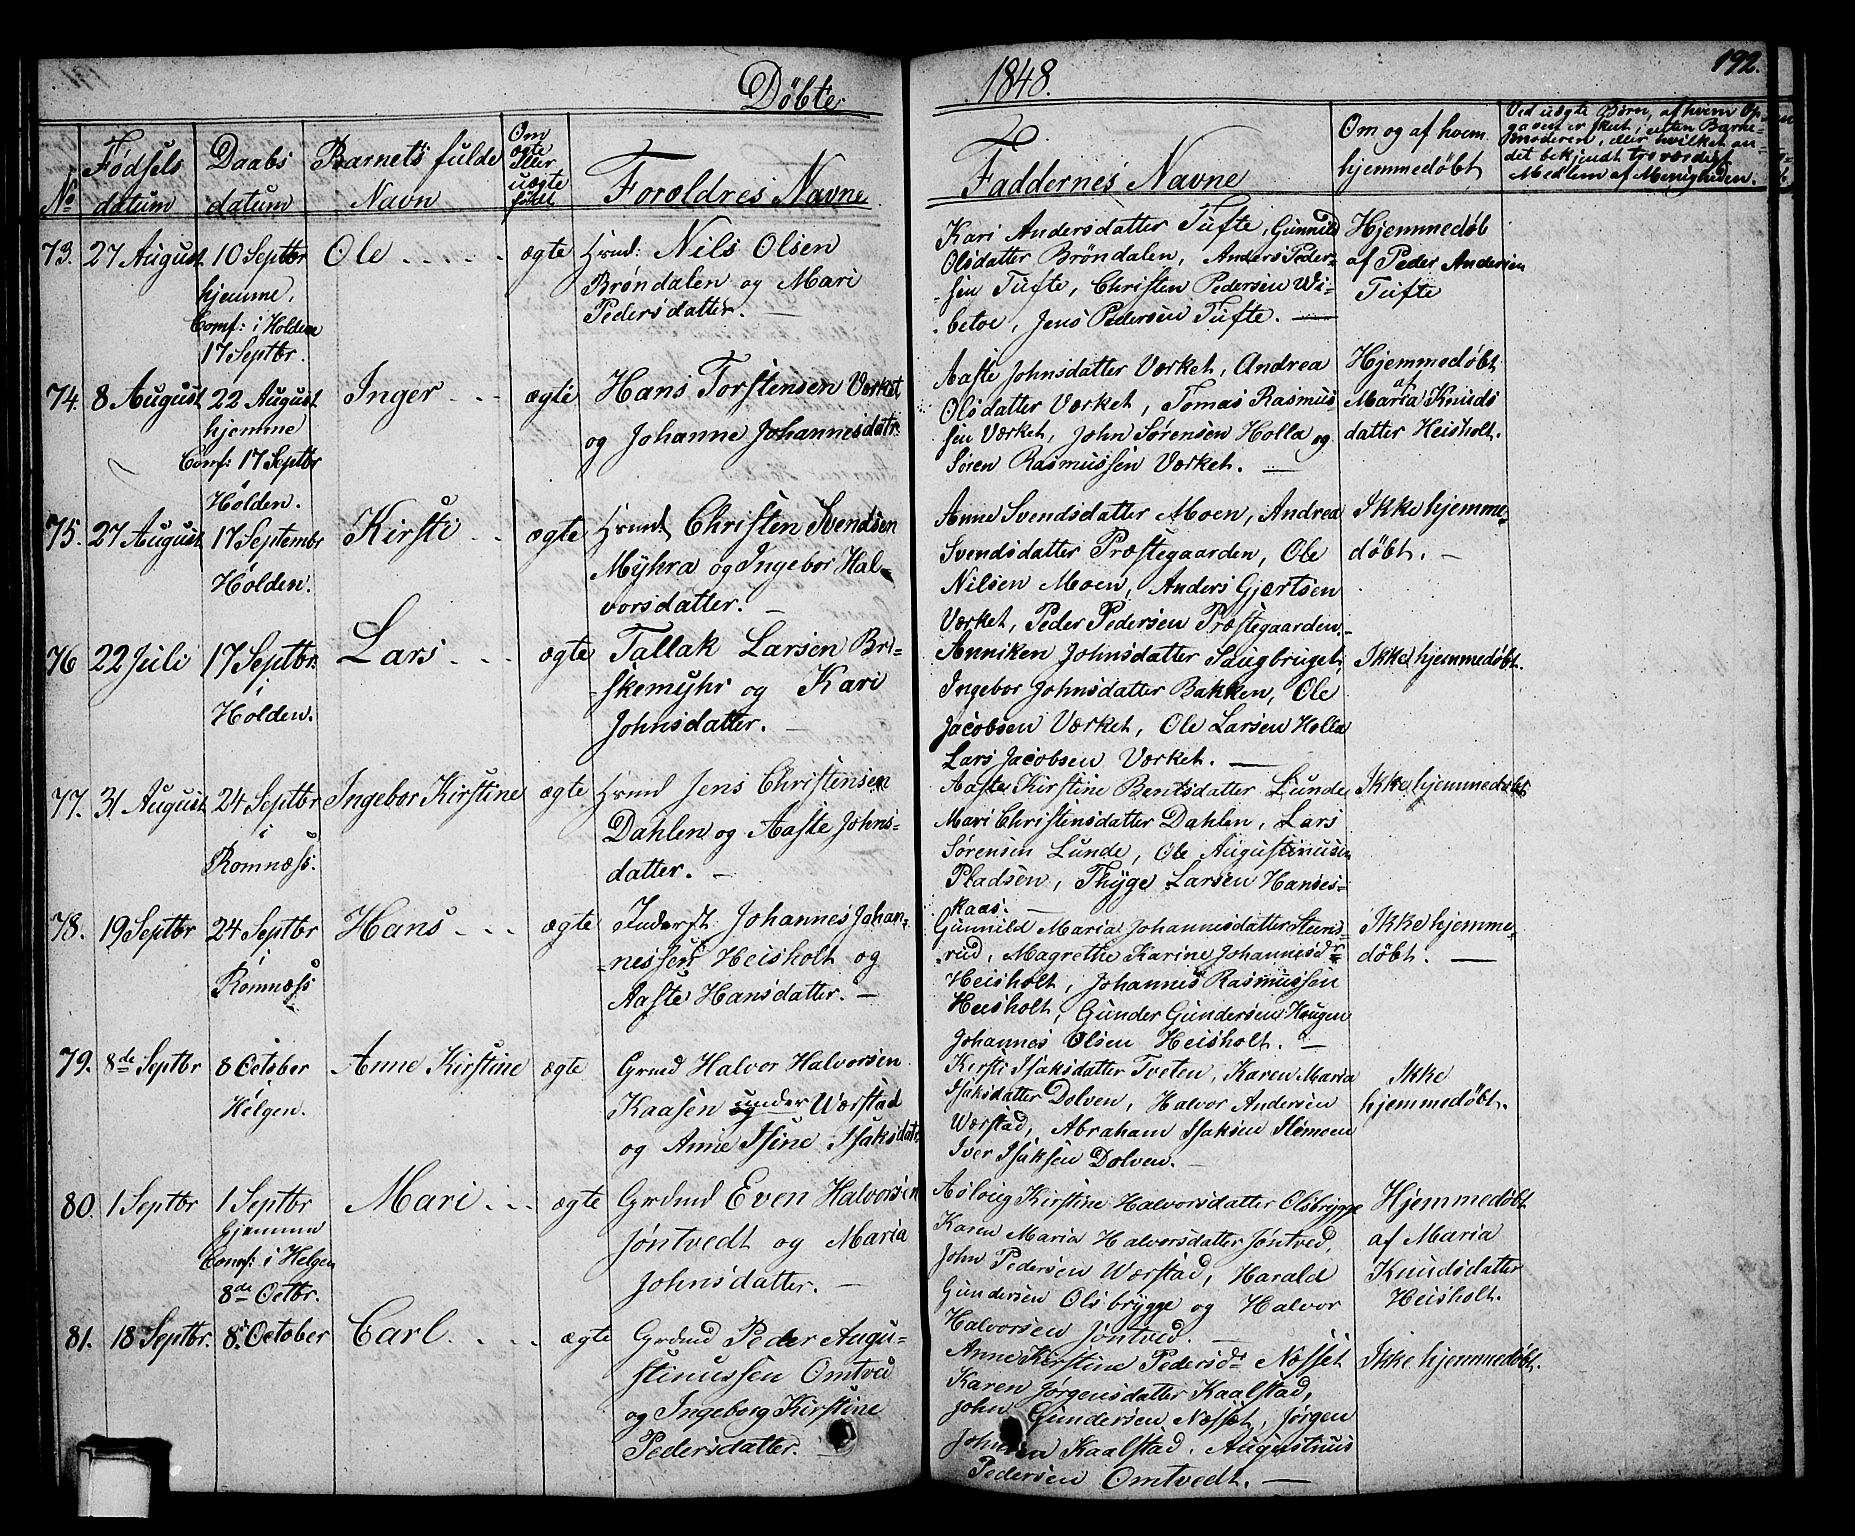 Døbte
1848.
192.
No
Fødsels
datum
Daabs
datum
Barnets fulde
Navn
Om
ægte
eller
uægte
født
Forældres Navne
Faddernes Navne
Om og af hvem
hjemmedøbt
Ved uægte Børn, af hvem Op-
gaven er skeet, enten Barne-
moderen, eller hvilket an-
det bekjendt troværdigt
Medlem af Menigheden.
73.
27 August
10 Septbr
hjemme,
Comf: i Holden
17 Septbr.
Ole
ægte
Hrmd: Nils Olsen
Brøndalen og Mari
Pedersdatter. —
Kari Andersdatter Tufte, Gunnild
Olsdatter Brøndalen, Anders Peder-
-sen Tufte, Christen Pedersen Wi-
betoe, Jens Pedersen Tufte. —
Hjemmedøb
af Peder Andersen
Tufte
74.
8 August
22 August
hjemme
Comf: 17 Septbr
i
Holden.
Inger
ægte
Hans Torstensen Værket
og Johanne Johannesdatr.
Aaste Johnsdatter Værket, Andrea
Olsdatter Værket, Tomas Rasmus-
sen Værket, John Sørensen Holla og
Søren Rasmussen Værket. —
Hjemmedøbt
af
Maria Knuds
datter Heisholt.
75.
27 August
17 Septembr
i
Holden.
Kirsti
ægte
Hrmd. Christen Svendsen
Myhra og Ingebor Hal-
vorsdatter. —
Anne Svendsdatter Moen, Andrea
Svendsdatter Præstegaarden, Ole
Nilsen Moen, Anders Gjærtsen
Værket, Peder Pedersen Præstegaarden.
Ikke hjemme-
døbt. —
76
22 Juli
17 Septbr.
i
Holden.
Lars
ægte
Tallak Larsen Bri-
-skemyhr og Kari
Johnsdatter. —
Anniken Johnsdatter Saugbruget,
Ingebor Johnsdatter Bakken, Ole
Jacobsen Værket, Ole Larsen Holla
Lars Jacobsen Værket. —
Ikke hjemmedøbt.
77.
31 August
24 Septbr
i
Romnæss.
Ingebor Kirstine
ægte
Hrmd Jens Christensen
Dahlen og Aaste Johns-
datter. —
Aaste Kirstine Bentsdatter Lunde
Mari Christensdatter Dahlen, Lars
Sørensen Lunde, Ole Augustinusen
Pladsen, Thyge Larsen Hanses-
kaas. —
Ikke hjemmedøbt
78.
19 Septbr
24 Septbr
i
Romnæss
Hans
ægte
Inderst. Johannes Johan-
-nessen Heisholt og
Aaste Hansdatter. —
Gunnild Maria Johannisdatter Steins-
rud, Magrethe Karine Johannisdr
Heisholt, Johannis Rasmussen
Heisholt, Gunder Gundersen Haugen
Johannes Olsen Heisholt. —
Ikke hjemme-
døbt. —
79.
8de Septbr
8 October
i
Helgen.
Anne Kirstine
ægte
Grmd Halvor Halvorsen
Kaasen under Wærstad
og Anne Isine Isaksdatr
Kirsti Isaksdatter Tveten, Karen Maria
Isaksdatter Dolven, Halvor Andersen
Wærstad, Abraham Isaksen Slemoen
Iver Isaksen Dolven. —
Ikke
hjemmedøbt.
80.
1 Septbr
1 Septbr
hjemme
Comf: i Helgen
8de Octbr.
Mari
ægte
Grdmd Even Halvorsen
Jøntvedt og Maria
Johnsdatter. —
Asloug Kirstine Halvorsdatter Olsbrygge
Karen Maria Halvorsdatter Jøntved,
John Pedersen Wærstad, Harald
Gundersen Olsbrygge og Halvor
Halvorsen Jøntved. —
Hjemmedøbt
af Maria
Knudsdatter
Heisholt.
81.
18 Septbr.
8. October
Carl
ægte
Grdmd Peder Augu-
stinussen Omtved
og Ingeborg Kirstine
Pedersdatter. —
Anne Kirstine Pedersdr Næsset
Karen Jørgensdatter Kaalstad,
John Gundersen Næsset, Jørgen
Kaalstad. Augustinus
Pedersen Omtvedt. —
Ikke hjemmedøbt.